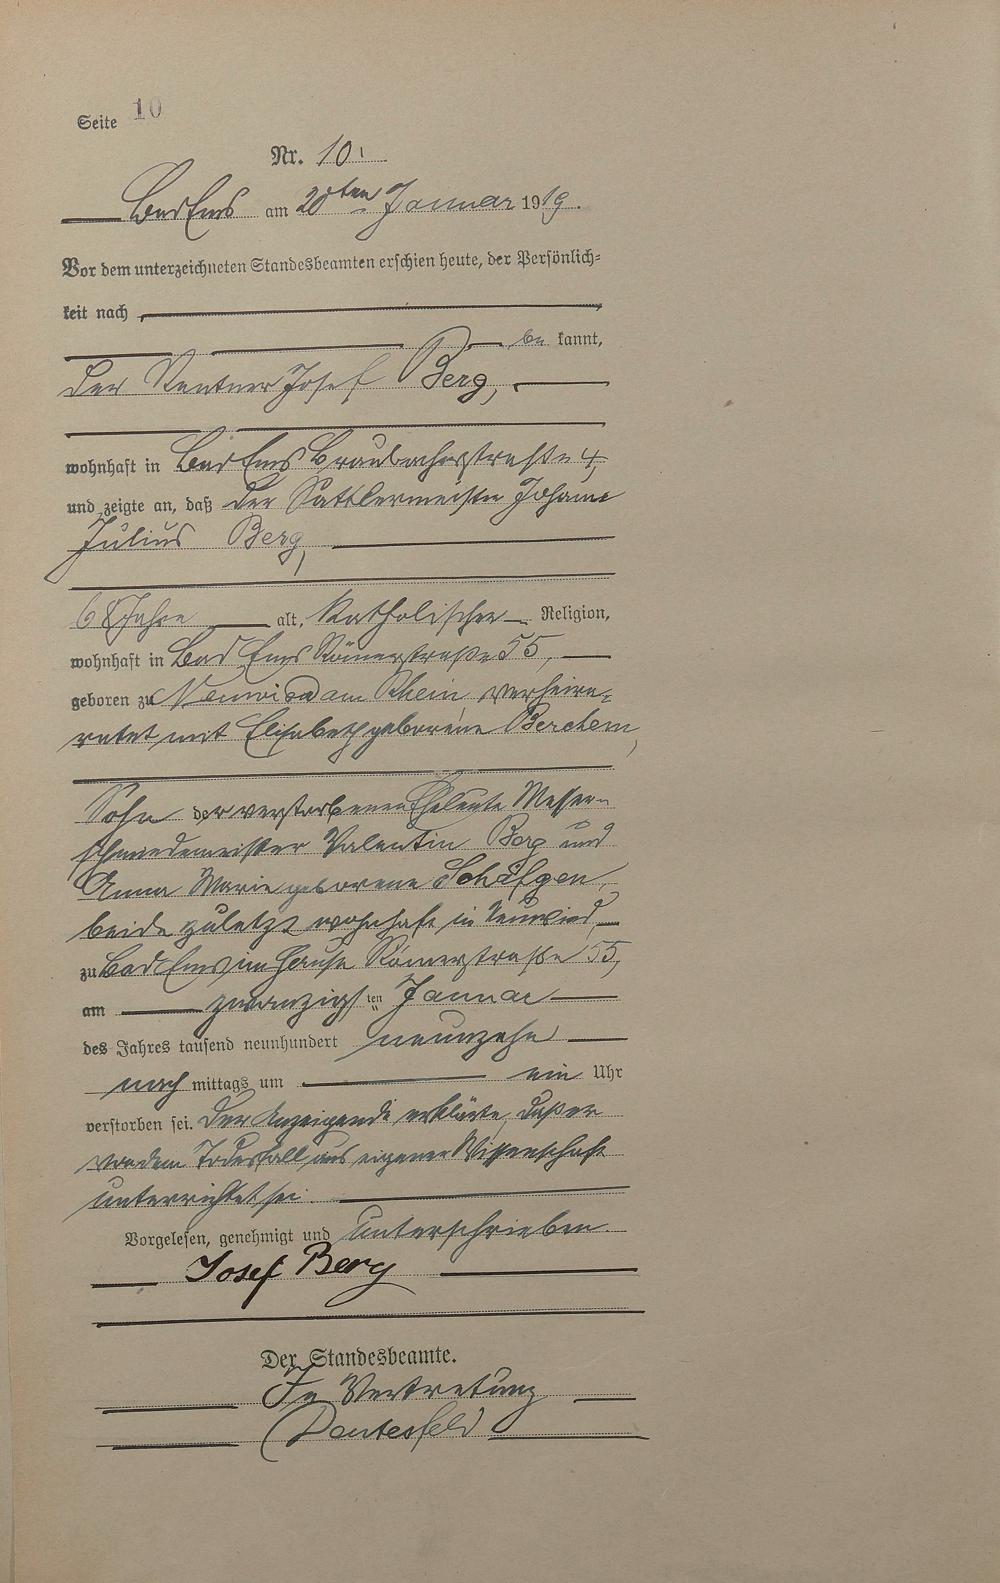 Seite 10
Nr. 10.
Bad Ems am 20ten Januar 1919.
Vor dem unterzeichneten Standesbeamten erschien heute, der Persönlich-
keit nach
be kannt,
der Rentner Josef Berg,
wohnhaft in Bad Ems Braubacherstraße 4,
und zeigte an, daß der Sattlermeister Johann
Julius Berg,
68 Jahre alt, katholischer Religion,
wohnhaft in Bad Ems Römerstraße 55,
geboren zu Neuwied am Rhein, verheira-
ratet mit Elisabeth geborene Berchem,
Sohn der verstorbenen Eheleute Messer-
schmiedemeister Valentin Berg und
Anna Marie geborene Schäfgen,
beide zuletzt wohnhaft in Neuwied,
zu Bad Ems im Hause Römerstraße 55,
am zwanzigsten Januar
des Jahres tausend neunhundert neunzehn
nach mittags um ein Uhr
verstorben sei. Der Anzeigende erklärte, daß er
von dem Todesfall aus eigener Wissenschaft
unterrichtet sei.
Vorgelesen, genehmigt und unterschrieben.
Josef Berg
Der Standesbeamte.
In Vertretung